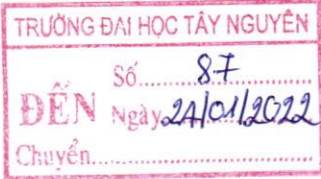 TRƯỜNG ĐẠI HỌC TÂY NGUYÊN
Số.....87.....
ĐẾN Ngày 24/01/2022
Chuyển.....